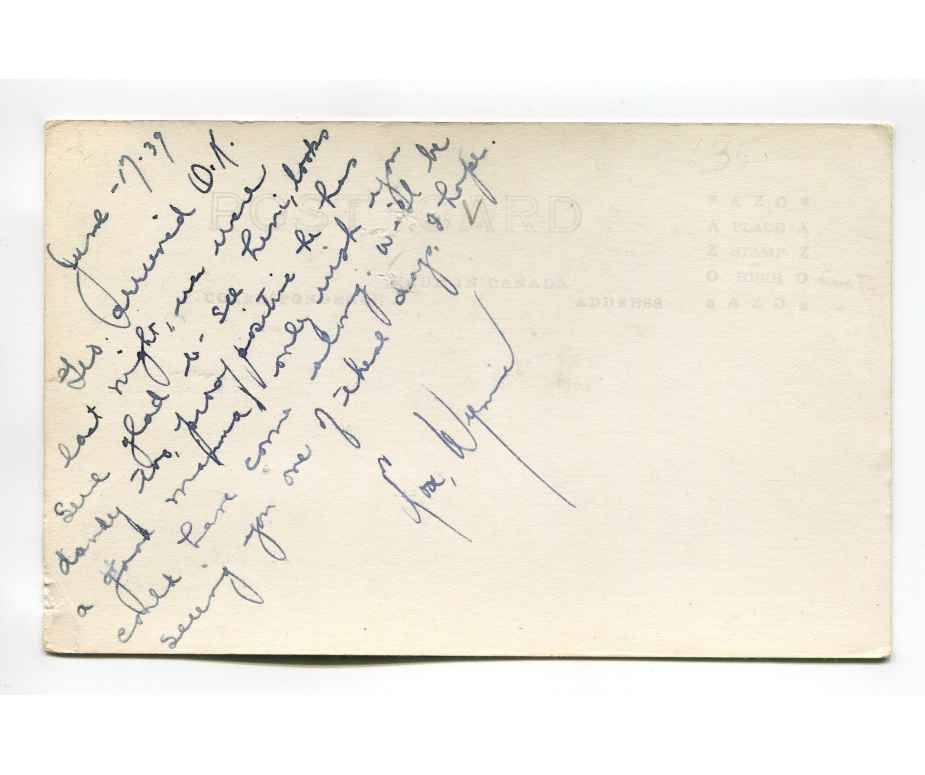 June -17-39
Geo. arrived O.K.
last night, we were
sure glad to see him, looks
dandy too, positive he has
a good mamma, only wish you
could have come along, will be
seeing you one of these days, I hope.
POST CARD
MADE IN CANADA
CORRESPONDENCE
ADDRESS
AZO
A PLACE A
Z STAMP Z
O HERE O
AZO